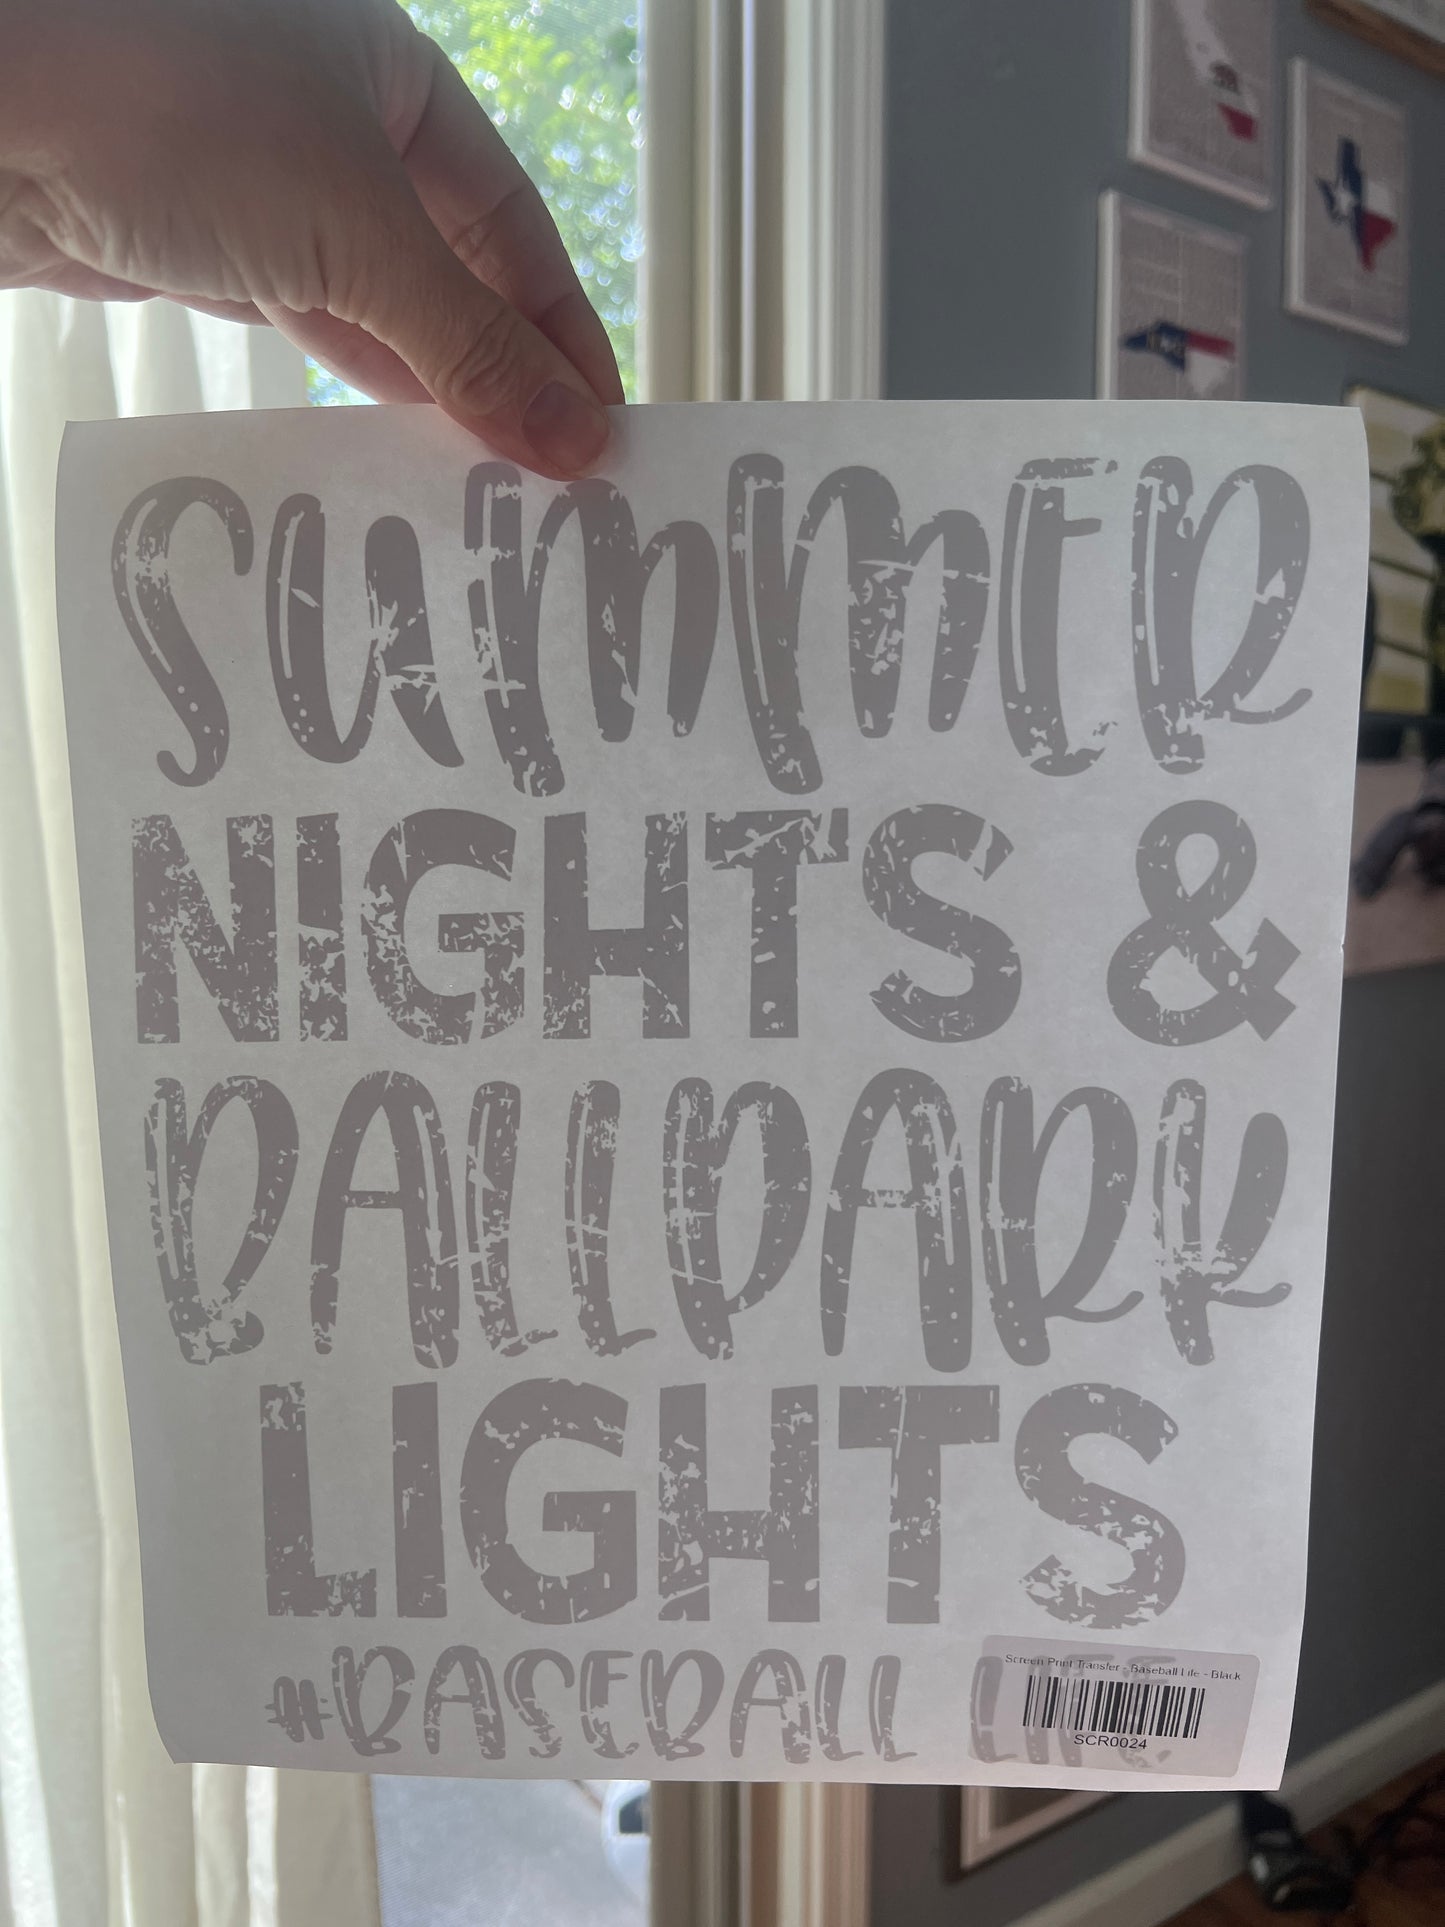 SUMMER
NIGHTS &
BALLPARK
LIGHTS
#BASEBALL LIFE
Screen Print Transfer - Baseball Life - Black
SCR0024